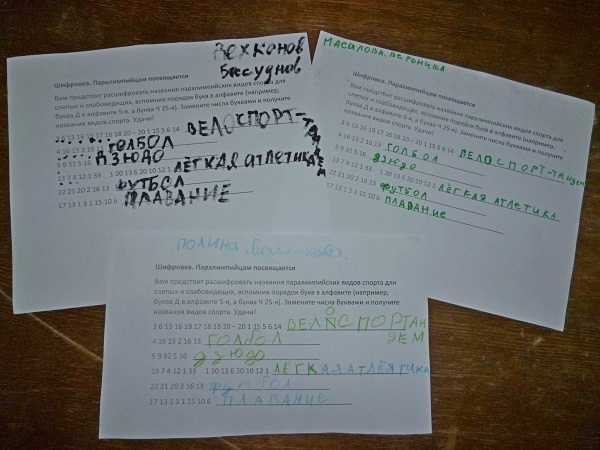 Вехконов
Басуднов
Шифровка. Паралимпийцам посвящается
Вам предстоит расшифровать названия паралимпийских видов спорта для
слепых и слабовидящих, вспомнив порядок букв в алфавите (например,
буква Д в алфавите 5-я, а буква Ч 25-я). Замените числа буквами и получите
названия видов спорта. Удачи!
3 6 13 16 19 17 16 18 20 – 20 1 15 5 6 14 ВЕЛОСПОРТ-ТАНДЕМ
4 16 13 2 16 13 ГОЛБОЛ
5 9 32 5 16 ДЗЮДО
13 7 4 12 1 33 1 20 13 6 20 10 12 1 ЛЁГКАЯ АТЛЕТИКА
22 21 20 2 16 13 ФУТБОЛ
17 13 1 3 1 15 10 6 ПЛАВАНИЕ
МАСАЛОВА. ВЕРОНИКА
Шифровка. Паралимпийцам посвящается
Вам предстоит расшифровать названия паралимпийских видов спорта для
слепых и слабовидящих, вспомнив порядок букв в алфавите (например,
буква Д в алфавите 5-я, а буква Ч 25-я). Замените числа буквами и получите
названия видов спорта. Удачи!
3 6 13 16 19 17 16 18 20 – 20 1 15 5 6 14 ВЕЛОСПОРТ-ТАНДЕМ
4 16 13 2 16 13 ГОЛБОЛ
5 9 32 5 16 ДЗЮДО
13 7 4 12 1 33 1 20 13 6 20 10 12 1 ЛЁГКАЯ АТЛЕТИКА
22 21 20 2 16 13 ФУТБОЛ
17 13 1 3 1 15 10 6 ПЛАВАНИЕ
ПОЛИНА. Баскакова.
Шифровка. Паралимпийцам посвящается
Вам предстоит расшифровать названия паралимпийских видов спорта для
слепых и слабовидящих, вспомнив порядок букв в алфавите (например,
буква Д в алфавите 5-я, а буква Ч 25-я). Замените числа буквами и получите
названия видов спорта. Удачи!
3 6 13 16 19 17 16 18 20 – 20 1 15 5 6 14 ВЕЛОСПОРТАН
ДЕМ
4 16 13 2 16 13 ГОЛБОЛ
5 9 32 5 16 ДЗЮДО
13 7 4 12 1 33 1 20 13 6 20 10 12 1 ЛЁГКАЯ АТЛЁТИКА
22 21 20 2 16 13 ФУТБОЛ
17 13 1 3 1 15 10 6 ПЛАВАНИЕ